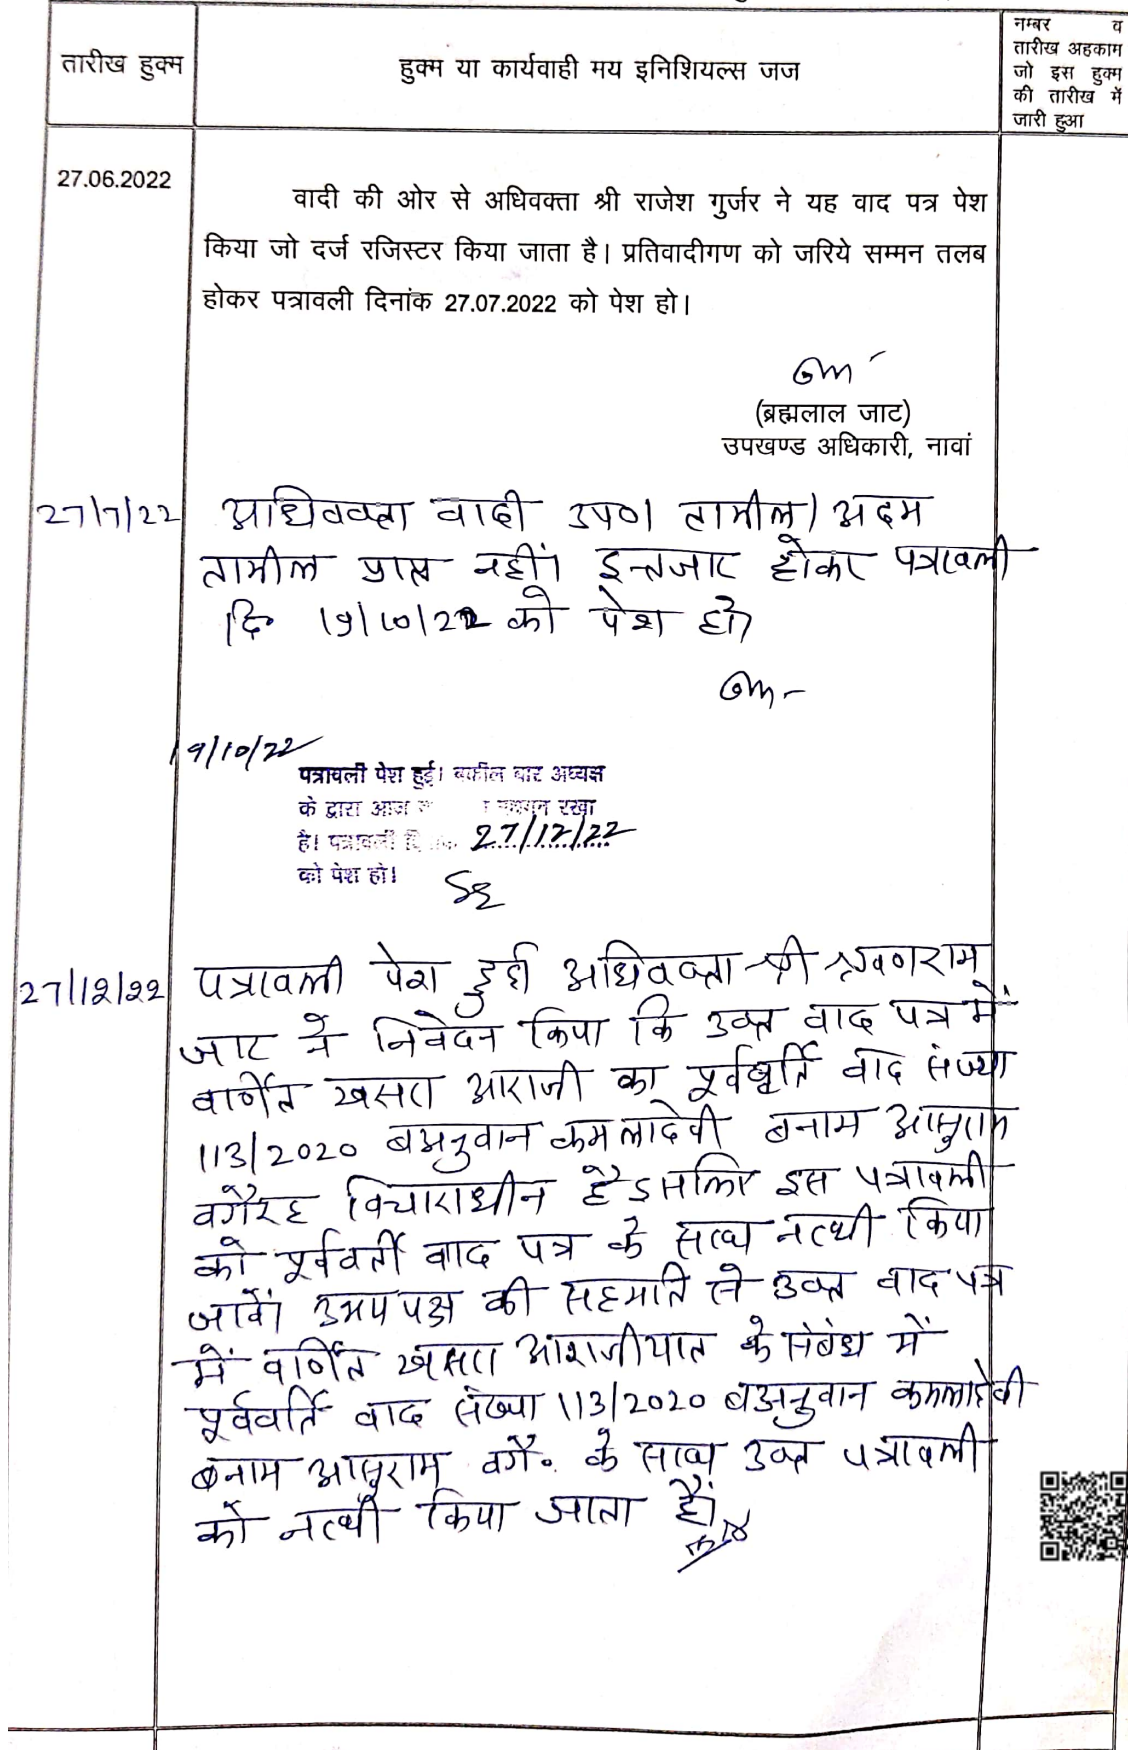 तारीख हुक्म
हुक्म या कार्यवाही मय इनिशियल्स जज
नम्बर व
तारीख अहकाम
जो इस हुक्म
की तारीख में
जारी हुआ
27.06.2022
वादी की ओर से अधिवक्ता श्री राजेश गुर्जर ने यह वाद पत्र पेश
किया जो दर्ज रजिस्टर किया जाता है। प्रतिवादीगण को जरिये सम्मन तलब
होकर पत्रावली दिनांक 27.07.2022 को पेश हो।
(ब्रह्मलाल जाट)
उपखण्ड अधिकारी, नावां
27/7/22 अधिवक्ता वादी उप०। तामील/अदम
तामील प्राप्त नहीं। इन्तजार होकर पत्रावली
दि० 19/10/22 को पेश हो
19/10/22
पत्रावली पेश हुई। वकील बार अध्यक्ष
के द्वारा आज रखा
है। पत्रावली 27/12/22
को पेश हो।
27/12/22 पत्रावली पेश हुई। अधिवक्ता श्री श्रवणराम
जाट ने निवेदन किया कि उक्त वाद पत्र में
वर्णित खसरा आराजी का पूर्ववर्ति वाद संख्या
113/2020 बअनुवान कमलादेवी बनाम आसुराम
वगैरह विचाराधीन है इसलिए इस पत्रावली
को पूर्ववर्ती वाद पत्र के साथ नत्थी किया
जावें। उभयपक्ष की सहमति से उक्त वाद पत्र
में वर्णित खसरा आराजीयात के संबंध में
पूर्ववर्ति वाद संख्या 113/2020 बअनुवान कमलादेवी
बनाम आसुराम वगै० के साथ उक्त पत्रावली
को नत्थी किया जाता है।